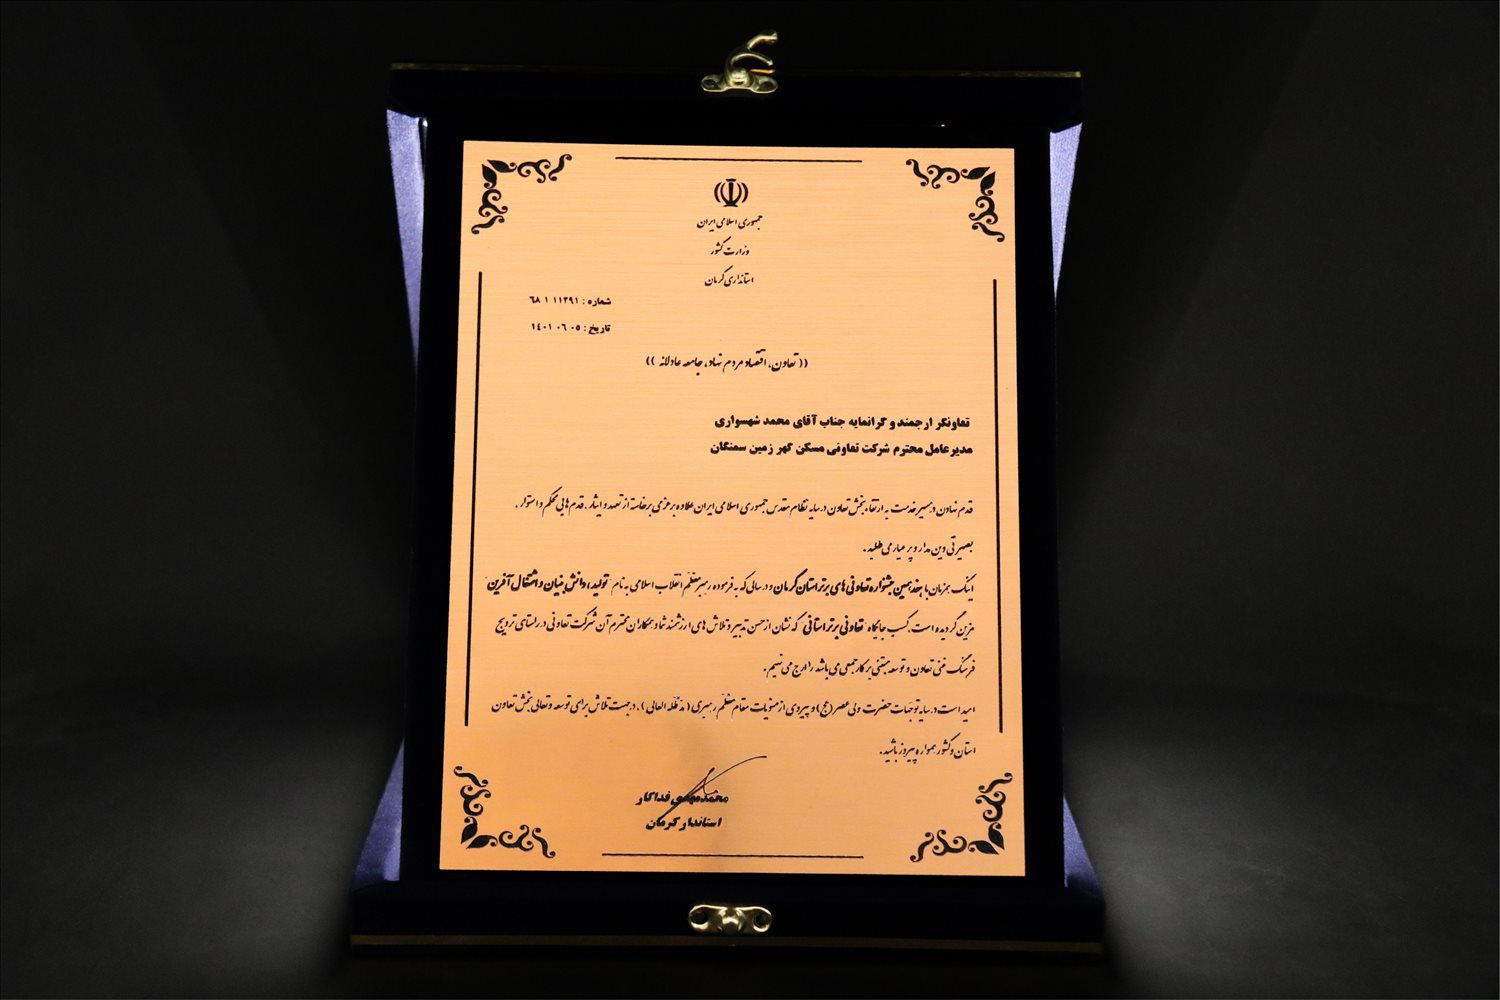 جمهوری اسلامی ایران
وزارت کشور
استانداری کرمان
شماره : ۱۱۳۹۱ ۱ ۶۸
تاریخ : ۰۵ ۰۶ ۱۴۰۱
(( تعاون، اقتصاد مردم نهاد، جامعه عادلانه ))
تعاونگر ارجمند و گرانمایه جناب آقای محمد شهسواری
مدیرعامل محترم شرکت تعاونی مسکن گهر زمین سمنگان
قدم نهادن در مسیر خدمت به ارتقاء بخش تعاون در سایه نظام مقدس جمهوری اسلامی ایران علاوه بر عزمی برخاسته از تعهد و ایثار، قدم هایی محکم و استوار ،
بصیرتی دین مدار و پر عیار می طلبد .
اینک همزمان با هفدهمین جشنواره تعاونی های برتر استان کرمان و در سالی که به فرموده رهبر معظم انقلاب اسلامی به نام "تولید، دانش بنیان و اشتغال آفرین"
مزین گردیده است، کسب جایگاه تعاونی برتر استانی که نشان از حسن تدبیر و تلاش های ارزشمند شما و همکاران محترم آن شرکت تعاونی در راستای ترویج
فرهنگ غنی تعاون و توسعه مبتنی بر کار جمعی می باشد را ارج می نهیم .
امید است در سایه توجهات حضرت ولی عصر (عج) و پیروی از منویات مقام معظم رهبری ( مد ظله العالی ) ، در جهت تلاش برای توسعه و تعالی بخش تعاون
استان و کشور همواره پیروز باشید .
محمدمهدی فداکار
استاندار کرمان